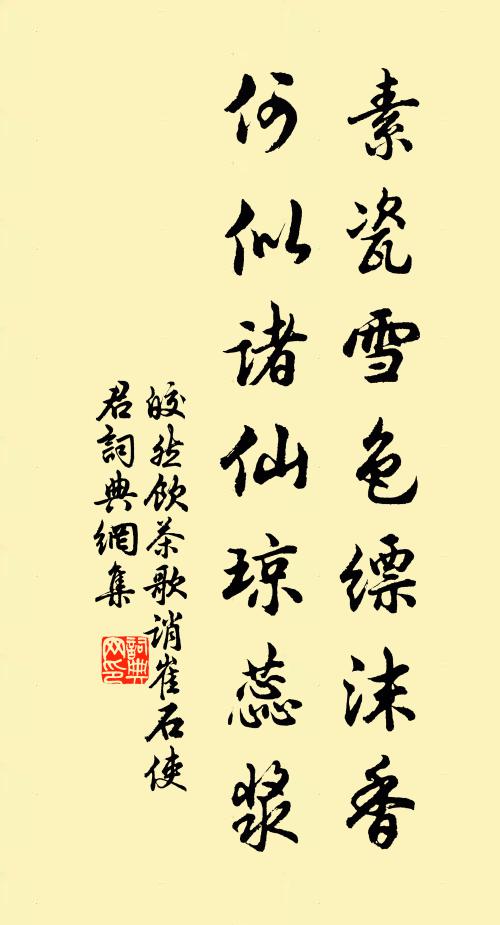 素瓷雪色缥沫香
何似诸仙琼蕊浆
皎然饮茶歌诮崔石使
君詞典網集
詞典网印